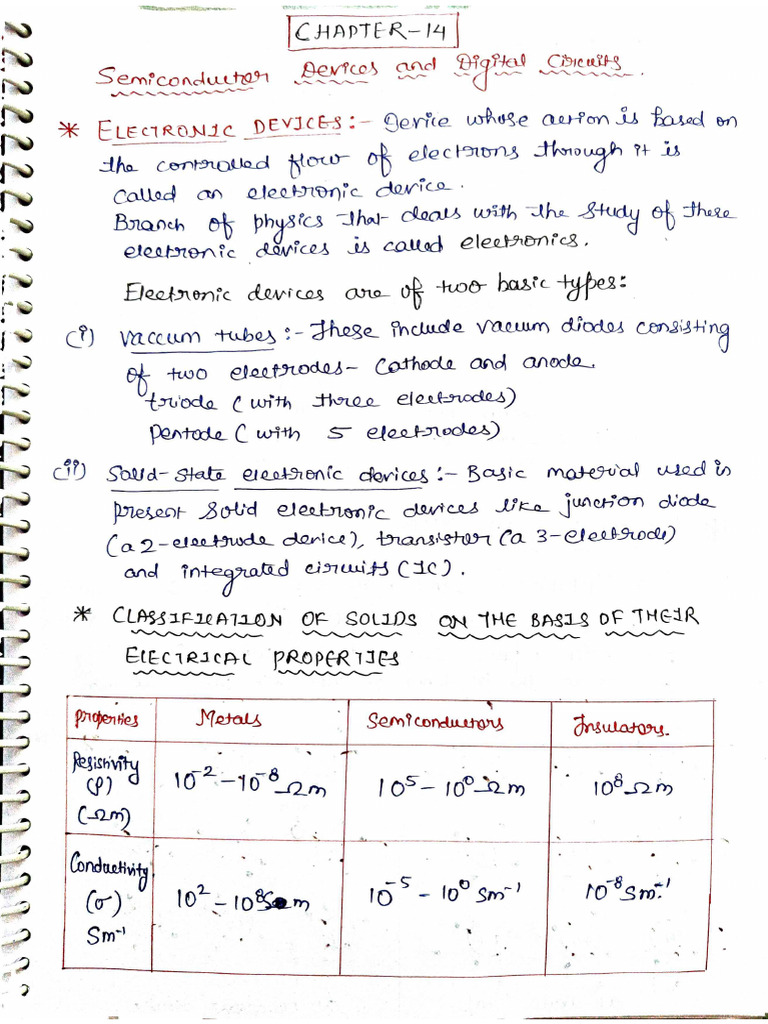 CHAPTER-14
Semiconductor Devices and Digital Circuits.
* ELECTRONIC DEVICES:- Device whose action is based on
the controlled flow of electrons through it is
called an electronic device.
Branch of physics that deals with the study of these
electronic devices is called electronics.
Electronic devices are of two basic types:
(i) Vaccum tubes:- These include vacuum diodes consisting
of two electrodes- Cathode and anode.
triode (with three electrodes)
Pentode (with 5 electrodes)
(ii) Solid-State electronic devices:- Basic material used in
present Solid electronic devices like junction diode
(a 2-electrode device), transistor (a 3-electrode)
and integrated circuits (IC).
* CLASSIFICATION OF SOLIDS ON THE BASIS OF THEIR
ELECTRICAL PROPERTIES
Properties Metals Semiconductors Insulators.
Resistivity (ρ) (Ωm) 10⁻² – 10⁻⁸ Ωm 10⁵ – 10⁰ Ωm 10⁸ Ωm
Conductivity (σ) Sm⁻¹ 10² – 10⁸ S m 10⁻⁵ – 10⁰ Sm⁻¹ 10⁻⁸ Sm⁻¹